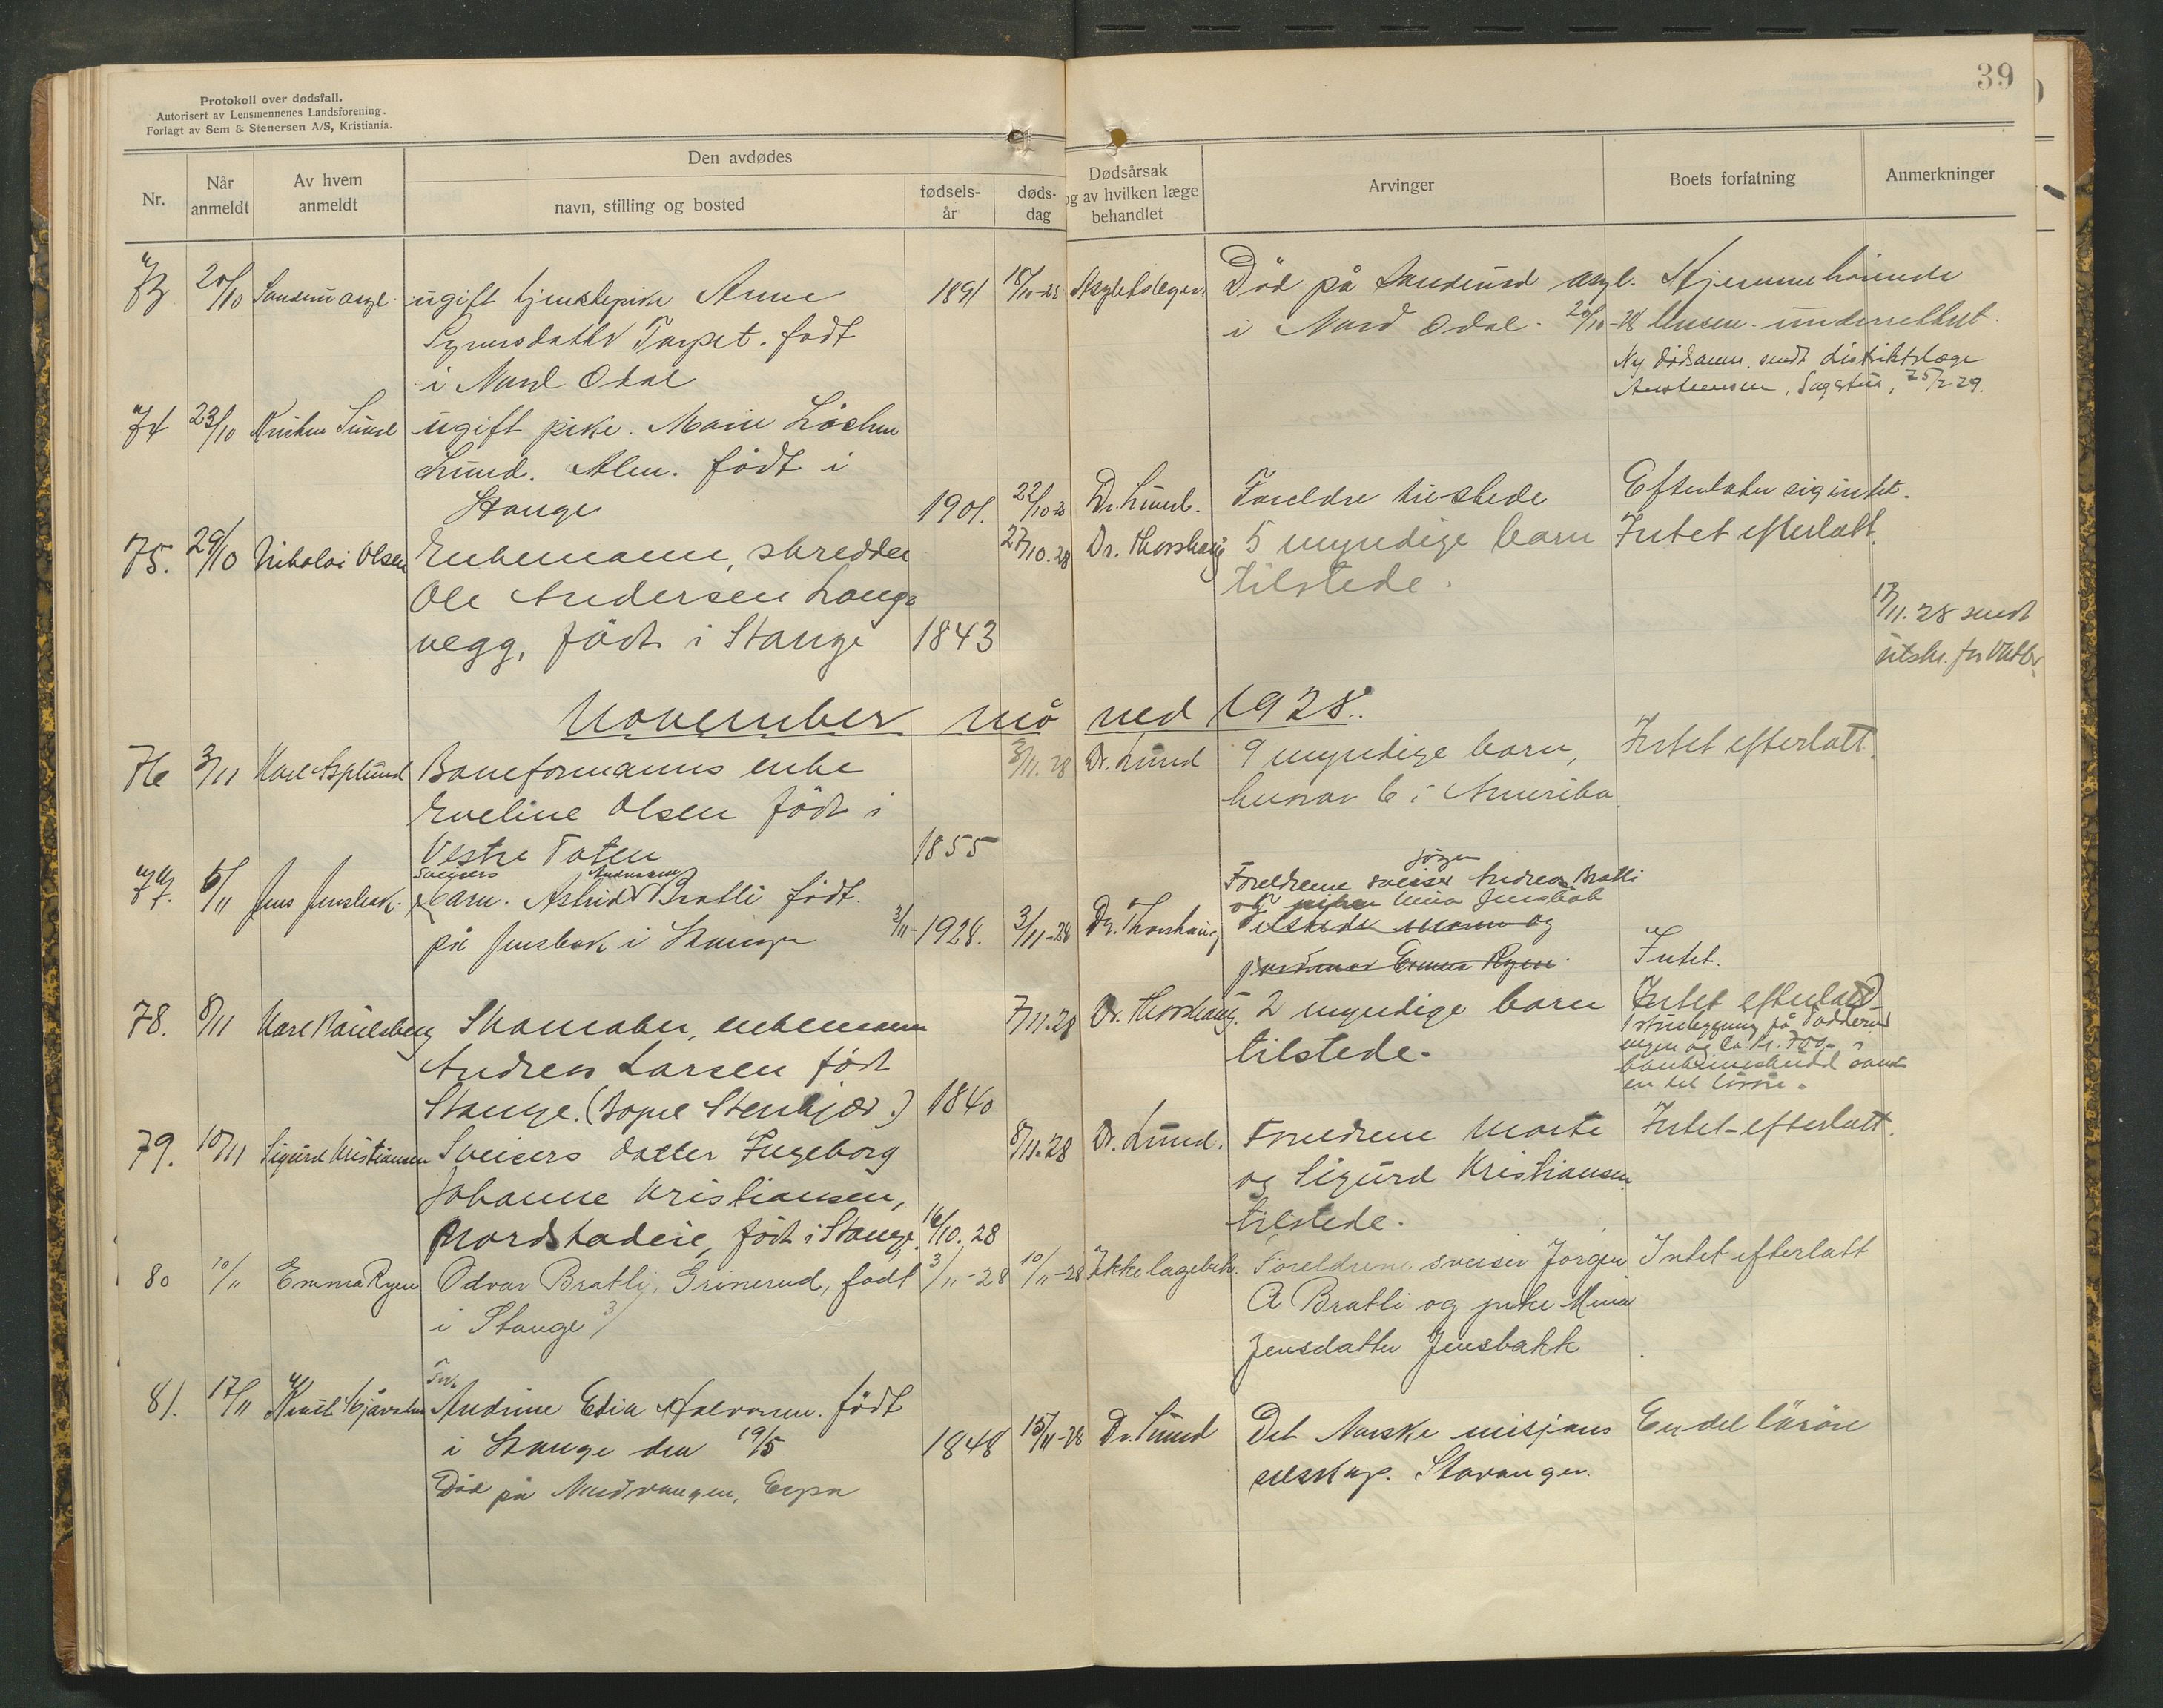 39
Protokoll over dødsfall.
Autorisert av Lensmennenes Landsforening.
Forlagt av Sem & Stenersen A/S, Kristiania.
Nr.
Når anmeldt
Av hvem anmeldt
Den avdødes
navn, stilling og bosted
fødsels-år
døds-dag
Dødsårsak og av hvilken læge behandlet
Arvinger
Boets forfatning
Anmerkninger
73 20/10 ugift tjenstepike Anne 1891 18/10-28 Asyllægen. Död på Sanderud asyl. Hjemmehörende
Torpet. född i Nord Odal. 20/10-28 lensm. underrettet.
i Nord Odal
Ny dödsanm. sendt distriktslæge
Sagstua, 25/2 29.
74 23/10 ugift pike. Marie
Lund. född i
Stange 1901. 22/10-28 Dr. Lund. Foreldre tilstede Efterlater sig intet.
75. 29/10 Nikolai Olsen Enkemann, skredder 27/10.28 Dr. Thorshaug 5 myndige barn Intet efterlatt.
Ole Andersen Lang- tilstede.
vegg, född i Stange 1843
17/11.28 sendt
utskr. for
November måned 1928.
76 3/11 Karl Asplund Baneformanns enke 3/11.28 Dr. Lund 9 myndige barn, Intet efterlatt.
Eveline Olsen född i hvorav 6 i Amerika.
Vestre Toten 1855
77. 6/11 Jens Jensbak. Sveisers barn. Astrid Bratli född. 3/11-1928. 3/11-28 Dr. Thorshaug Foreldrene sveiser Jörgen Andreas Bratli
på Jensbak i Stange og piken Mina Jensbak
Tilstede
jordmor Emma Ryen. Intet.
78. 8/11 Karl Paulsberg Skomaker, enkemann 7/11.28 Dr. Thorshaug. 2 myndige barn Intet efterlatt
Andreas Larsen född tilstede.
Stange. (Bopel Stenkjær.) 1840
1 stuebygning på
engen og ca. kr. 700,-
bankinnskudd samt
en del lösöre.
79. 10/11 Sigurd Kristiansen Sveisers datter Ingeborg 8/11.28 Dr. Lund. Foreldrene Marte Intet efterlatt.
Johanne Kristiansen, og Sigurd Kristiansen
född i Stange. 16/10.28 tilstede.
80 10/11 Emma Ryen Odvar Bratli, Grinerud, född 3/11-28 10/11-28 Ikke lægebeh. Foreldrene sveiser Jörgen Intet efterlatt
i Stange 3/ A Bratli og pike Mina
Jensdatter Jensbakk
81. 17/11 Frk. Andrine Halvorsen. född
i Stange den 19/5 1848 15/11-28 Dr. Lund Det Norske misjons En del lösöre
selskap. Stavanger.
Död på Nordvangen, Espa